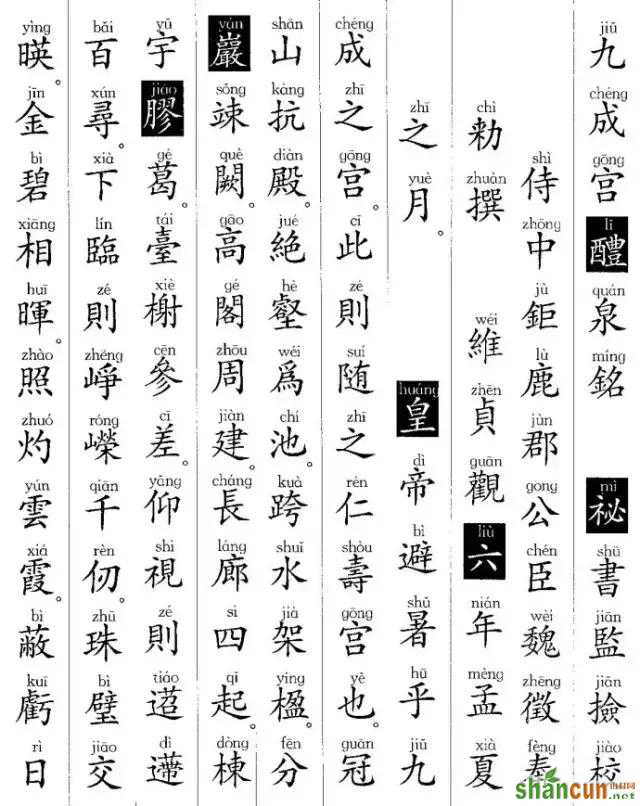 jiǔ chéng gōng lǐ quán míng mì shū jiān jiǎn jiào
九成宫醴泉銘 祕書監撿校
shì zhōng jù lù jùn gōng chén wèi zhēng fèng
侍中鉅鹿郡公臣魏徵奉
chì zhuàn wéi zhēn guān liù nián mèng xià
勑撰 維貞觀六年孟夏
zhī yuè huáng dì bì shǔ hū jiǔ
之月。皇帝避暑乎九
chéng zhī gōng cǐ zé suí zhī rén shòu gōng yě guān
成之宫。此則随之仁壽宫也。冠
shān kàng diàn jué hè wéi chí kuà shuǐ jià yíng fēn
山抗殿。絶壑爲池。跨水架楹。分
yán sǒng què gāo gé zhōu jiàn cháng láng sì qǐ dòng
巖竦闕。高閣周建。長廊四起。棟
yǔ jiāo gé tái xiè cēn cī yǎng shì zé tiáo dì
宇膠葛。臺榭參差。仰視則迢遰
bǎi xún xià lín zé zhēng róng qiān rèn zhū bì jiāo
百尋。下臨則崢嶸千仞。珠璧交
yìng jīn bì xiāng huī zhào zhuó yún xiá bì kuī rì
暎。金碧相暉。照灼雲霞。蔽虧日
shancun